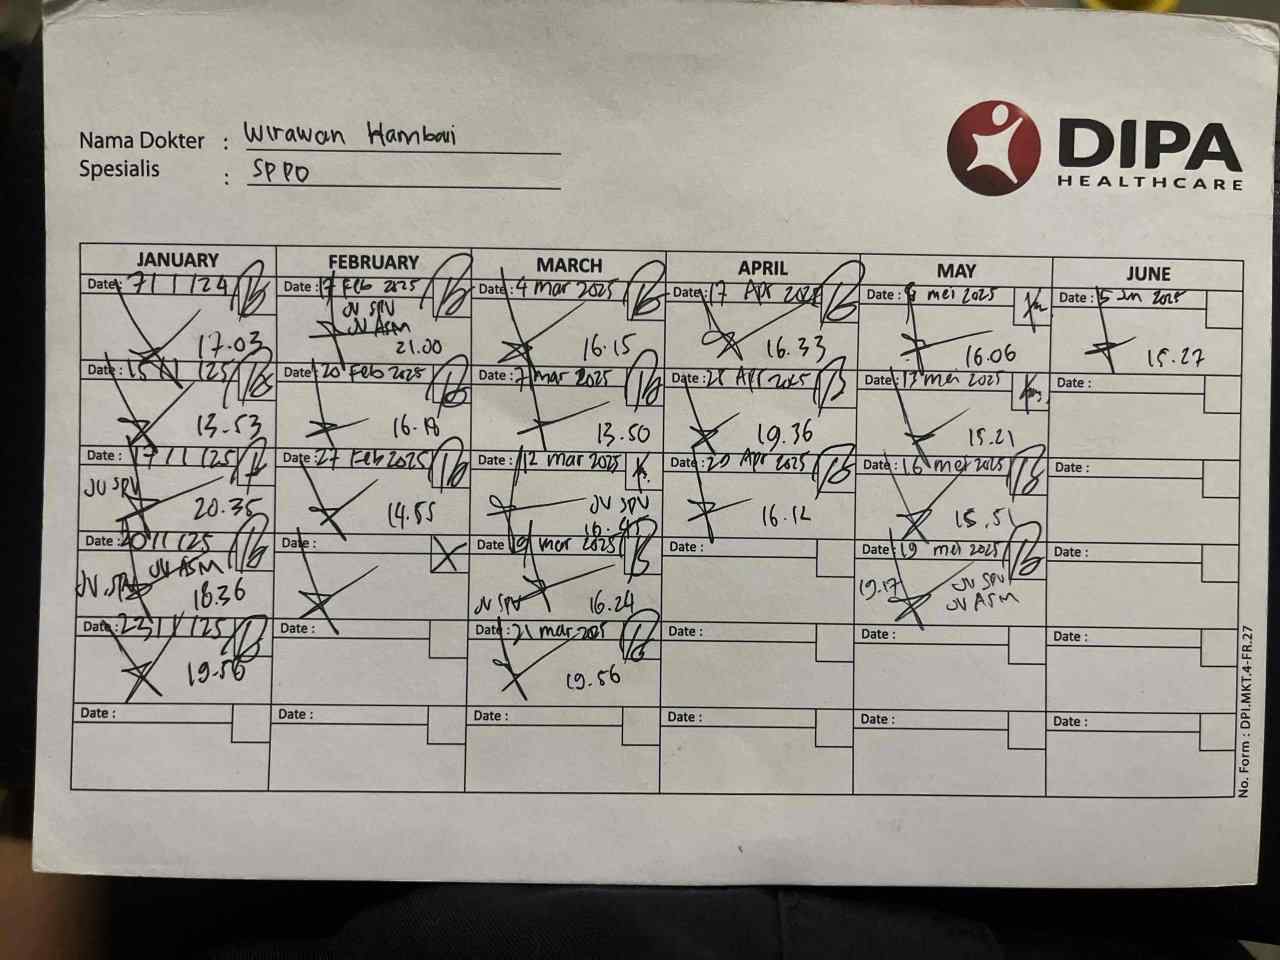 Nama Dokter : Wirawan Hambari
Spesialis : SPPD
DIPA
HEALTHCARE
JANUARY
Date: 7/1/24
17.03
Date: 15/1/25
13.53
Date: 17/1/25
JV SPV
20.35
Date: 20/1/25
JV SPV JV ASM
18.36
Date: 22/1/25
19.56
Date :
FEBRUARY
Date: 17 Feb 2025
JV SPV
JV ASM
21.00
Date: 20 Feb 2025
16.18
Date: 27 Feb 2025
14.55
Date :
Date :
Date :
MARCH
Date: 4 Mar 2025
16.15
Date: 7 mar 2025
13.50
Date: 12 mar 2025
JV SPV
16.45
Date: 19 mar 2025
JV SPV
16.24
Date: 21 mar 2025
19.56
Date :
APRIL
Date: 17 Apr 2025
16.33
Date: Apr 2025
19.36
Date: Apr 2025
16.12
Date :
Date :
Date :
MAY
Date: mei 2025
16.06
Date: 13 mei 2025
15.21
Date: 16 mei 2025
15.51
Date: 19 mei 2025
19.17
JV SPV
JV ASM
Date :
Date :
JUNE
Date: 5 Jun 2025
15.27
Date :
Date :
Date :
Date :
Date :
No. Form : DPI.MKT.4-FR.27